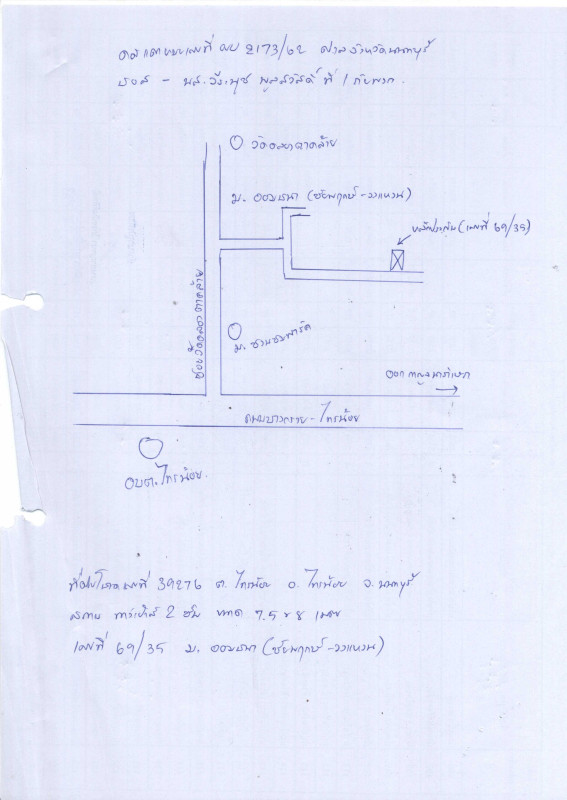 คดีแดงหมายเลขที่ ผบ 2173/62 ศาลจังหวัดนนทบุรี
ธอส - นส.วีระนุช พูลสวัสดิ์ ที่ 1 กับพวก.
วัดยอดพระพิมล
ม. ออมธนา (ชัยพฤกษ์-วงแหวน)
ทรัพย์ประเมิน (เลขที่ 69/35)
ม. ชวนชมพาร์ค
ออก กาญจนาภิเษก
ถนนบางกรวย-ไทรน้อย
อบต.ไทรน้อย.
ที่ดินโฉนดเลขที่ 39276 ต. ไทรน้อย อ. ไทรน้อย จ. นนทบุรี
สภาพ ทาวน์เฮ้าส์ 2 ชั้น ขนาด 7.5 x 8 เมตร
เลขที่ 69/35 ม. ออมธนา (ชัยพฤกษ์-วงแหวน)